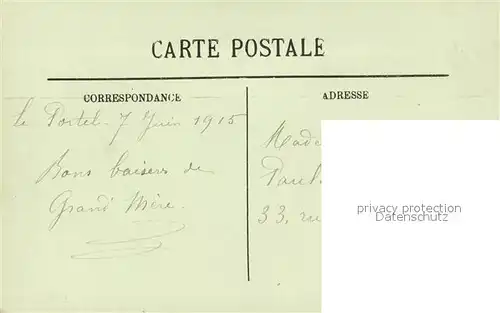 CARTE POSTALE
CORRESPONDANCE
ADRESSE
le Portel - 7 Juin 1915
Bons baisers de
Grand Mère.
Made
Paul
33, ru
privacy protection
Datenschutz